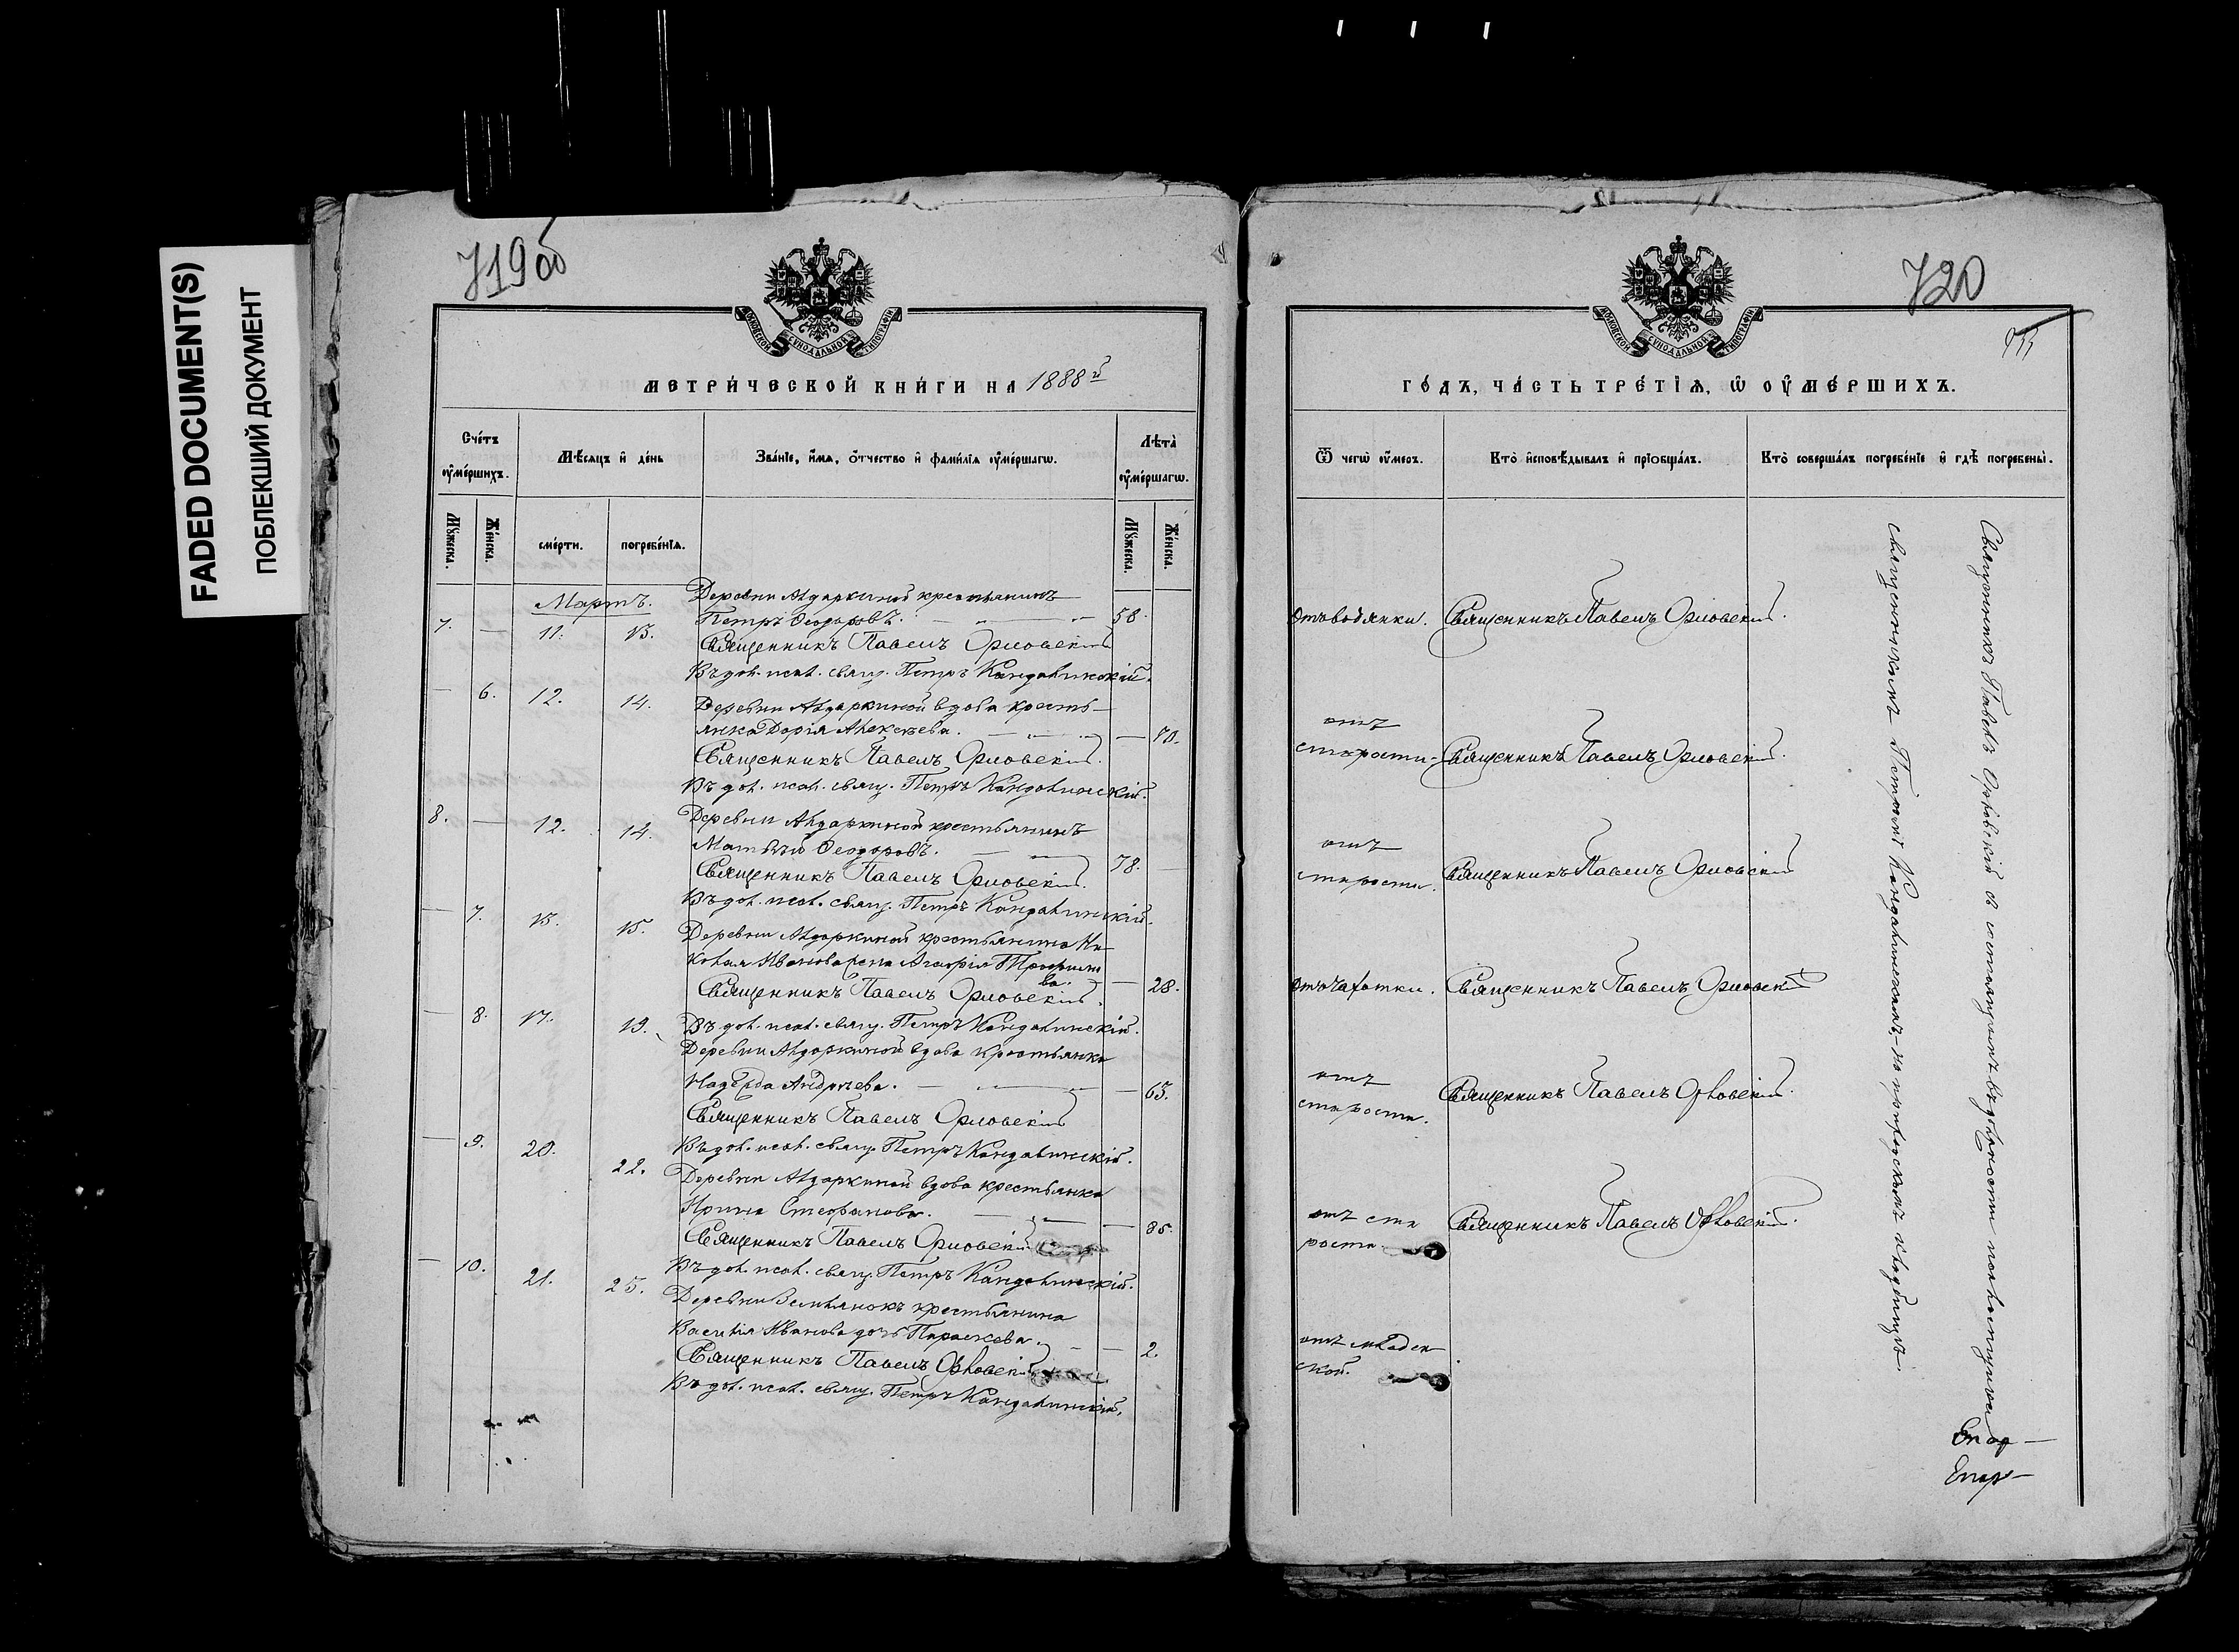 FADED DOCUMENT(S)
ПОБЛЕКШИЙ ДОКУМЕНТ
719 об
МОСКОВСКОЙ СѴНОДАЛЬНОЙ ТИПОГРАФІИ
МЕТРИ́ЧЕСКОЙ КНИ́ГИ НА 1888 й
Сче́тъ ᲂу҆ме́ршихъ.
Мѣ́сяцъ и҆ де́нь
Зва́нїе, и҆́мѧ, ѻ҆́тчество и҆ фами́лїѧ ᲂу҆ме́ршагѡ.
Лѣта̀ ᲂу҆ме́ршагѡ.
Мꙋ́жеска.
Же́нска.
сме́рти.
погребе́нїѧ.
Мꙋ́жеска.
Же́нска.
Мартъ.
Деревни Алдаркиной крестьянинъ
7. — 11. 13. Петръ Ѳеодоровъ. 58.
Священникъ Павелъ Орловскій
Въ дол. псал. свящ. Петръ Кандалинскій.
— 6. 12. 14. Деревни Алдаркиной вдова кресть-
янка Дарія Алексѣева. — 70.
Священникъ Павелъ Орловскій.
Въ дол. псал. свящ. Петръ Кандалинскій.
8. — 12. 14. Деревни Алдаркиной крестьянинъ
Матвѣй Ѳеодоровъ. 78. —
Священникъ Павелъ Орловскій.
Въ дол. псал. свящ. Петръ Кандалинскій.
— 7. 13. 15. Деревни Алдаркиной крестьянина Ни-
колая Иванова жена Агафія Трофимо
ва. — 28.
Священникъ Павелъ Орловскій.
— 8. 17. 19. Въ дол. псал. свящ. Петръ Кандалинскій.
Деревни Алдаркиной вдова крестьянка
Надежда Андреева. — 63.
Священникъ Павелъ Орловскій
— 9. 20. 22. Въ дол. псал. свящ. Петръ Кандалинскій.
Деревни Алдаркиной вдова крестьянка
Ирина Стефанова. — 85.
Священникъ Павелъ Орловскій
— 10. 21. 23. Въ дол. псал. свящ. Петръ Кандалинскій.
Деревни Землянокъ крестьянина
Василія Иванова дочь Параскева. — 2.
Священникъ Павелъ Орловскій
Въ дол. псал. свящ. Петръ Кандалинскій.
720
МОСКОВСКОЙ СѴНОДАЛЬНОЙ ТИПОГРАФІИ
ГО́ДЪ, ЧА́СТЬ ТРЕ́ТЇѦ, Ѡ҆ ОУ҆МЕ́РШИХЪ.
Ѿ чегѡ̀ ᲂу҆́меръ.
Кто̀ и҆сповѣ́дывалъ и҆ прїобща́лъ.
Кто̀ соверша́лъ погребе́нїе и҆ гдѣ̀ погребены̀.
отъ водянки. Священникъ Павелъ Орловскій.
отъ
старости. Священникъ Павелъ Орловскій.
отъ
старости. Священникъ Павелъ Орловскій
отъ чахотки. Священникъ Павелъ Орловскій
отъ
старости. Священникъ Павелъ Орловскій.
отъ ста
рости Священникъ Павелъ Орловскій.
отъ младен
ской.
Священникъ Павелъ Орловскій съ исправляющимъ должность псаломщика
священникомъ Петромъ Кандалинскимъ, на приходскомъ кладбищѣ.